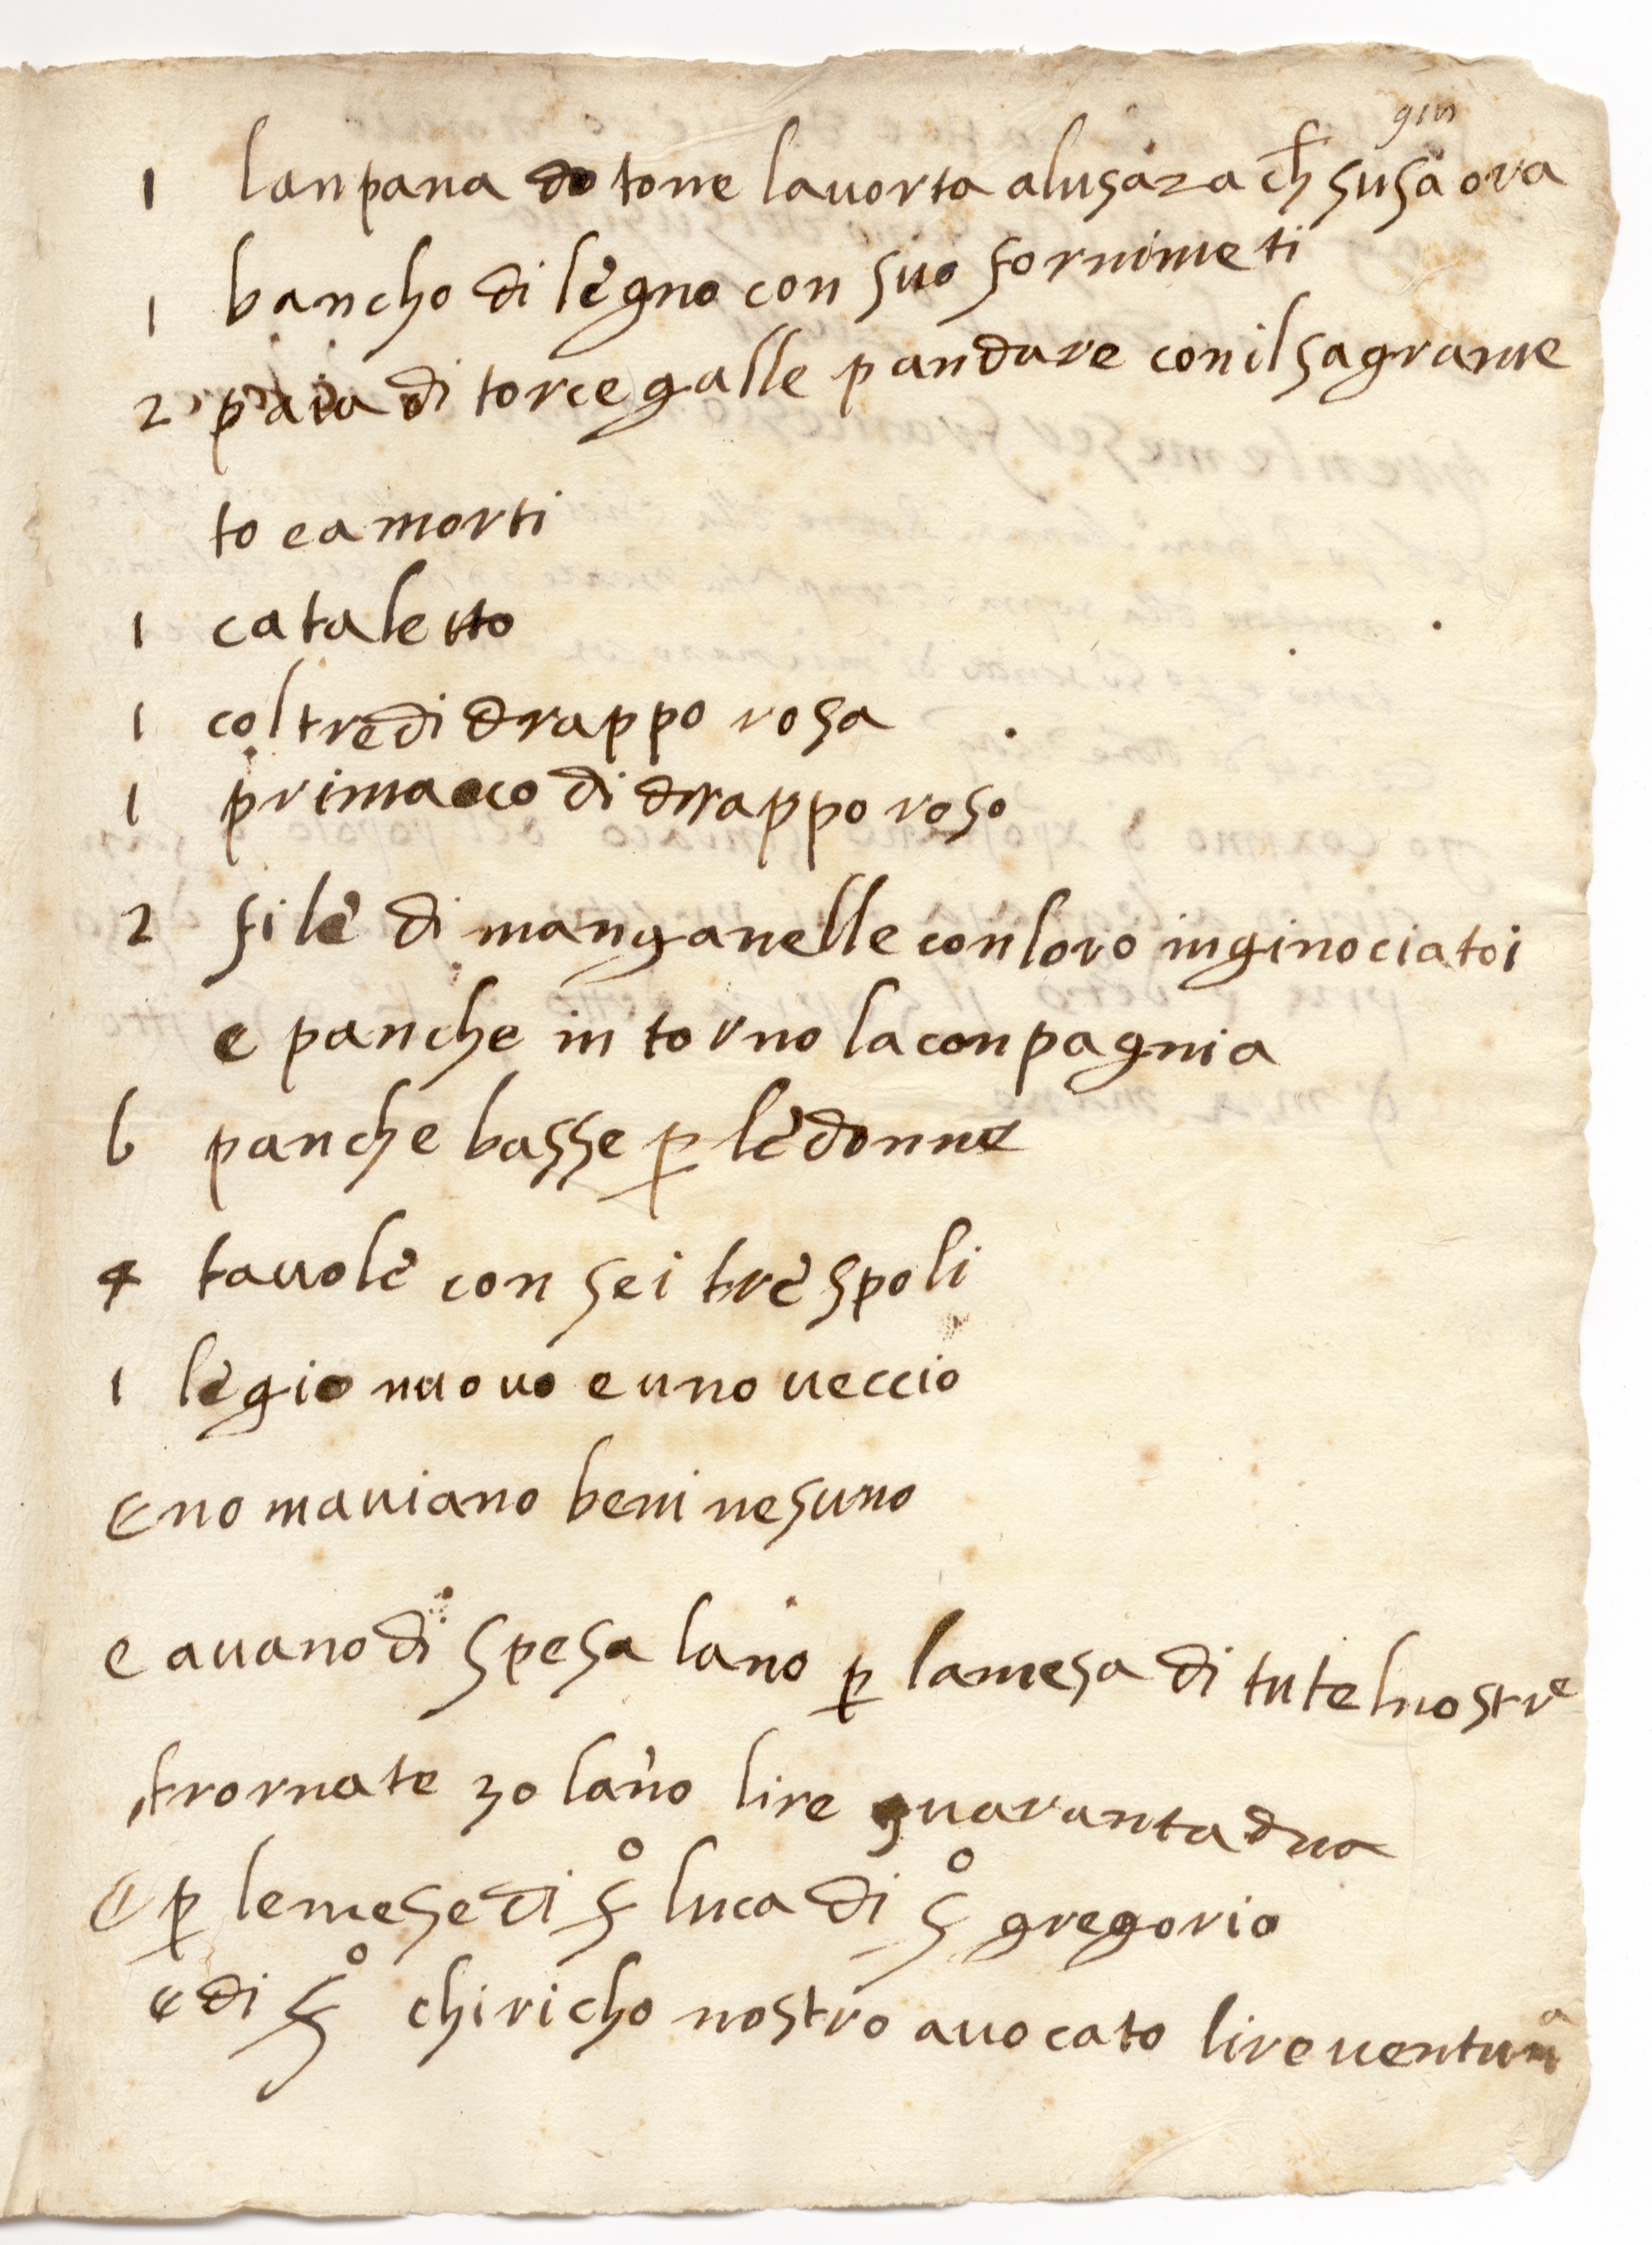 gin
1 lanpana do tone lauorta alusaza ch susa ora
1 bancho di legno con suo fornimeti
2 paia di torce galle p andare con il sagrame
to e a morti
1 cataletto
1 coltre di drappo rosa
1 primacco di drappo roso
2 file di manganelle con loro inginociatoi
e panche in torno la conpagnia
6 panche basse p le donne
4 tauole con sei trespoli
1 legio nuouo e uno ueccio
e no n auiano beni nesuno
e auano di spesa lano p la mesa di tute l nostre
trornate 30 lano lire quaranta dua
E p le mese di S° luca di S° gregorio
e di S° chiricho nostro auocato lire uentuna